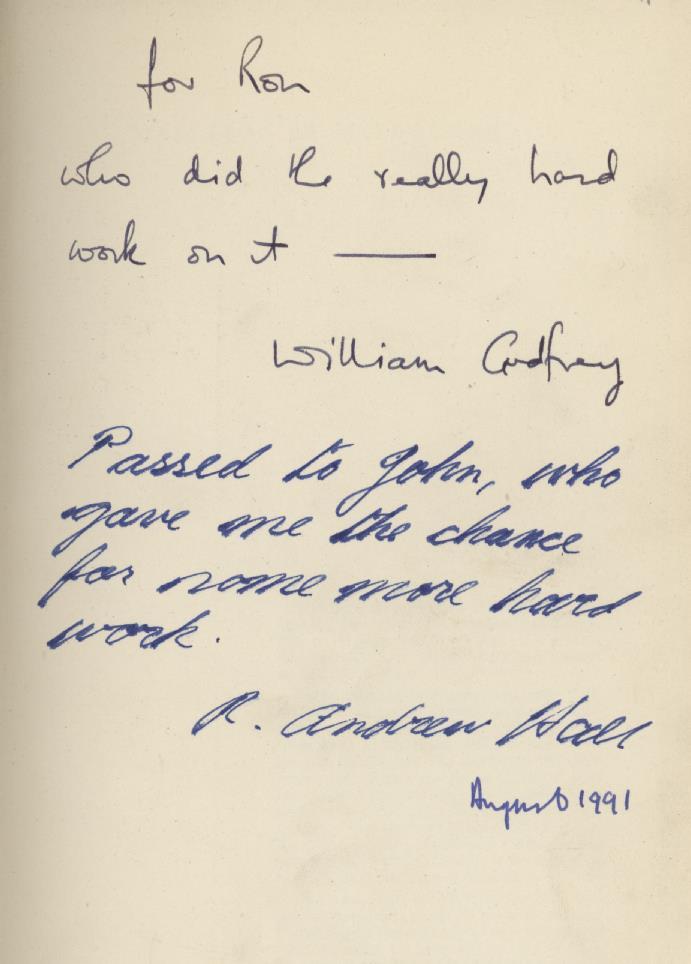 for Ron
who did the really hard
work on it —
William Godfrey
Passed to John, who
gave me the chance
for some more hard
work.
R. Andrew Hall
August 1991